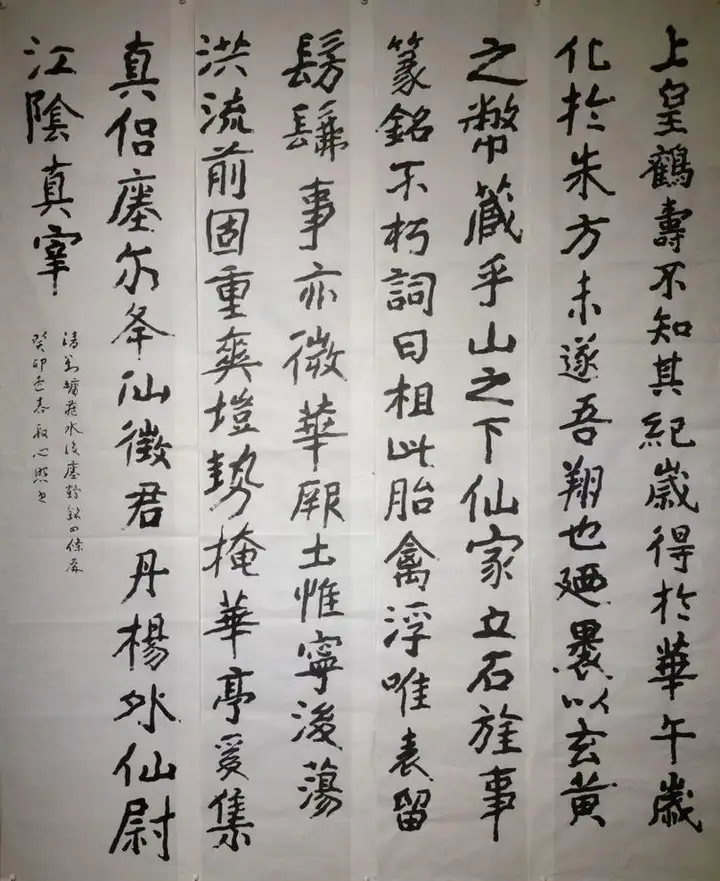 上皇鶴壽不知其紀歲得於華午歲
化於朱方未遂吾翔也廼褁以玄黃
之幣藏乎山之下仙家立石旌事
篆銘不朽詞曰相此胎禽浮唯表留
髣髴事亦微華厰土惟寧浚蕩
洪流前固重爽塏勢掩華亭爰集
真侣瘞尔夅仙徵君丹楊外仙尉
江陰真宰
清 水 瘞 銘四條屏
癸卯 心